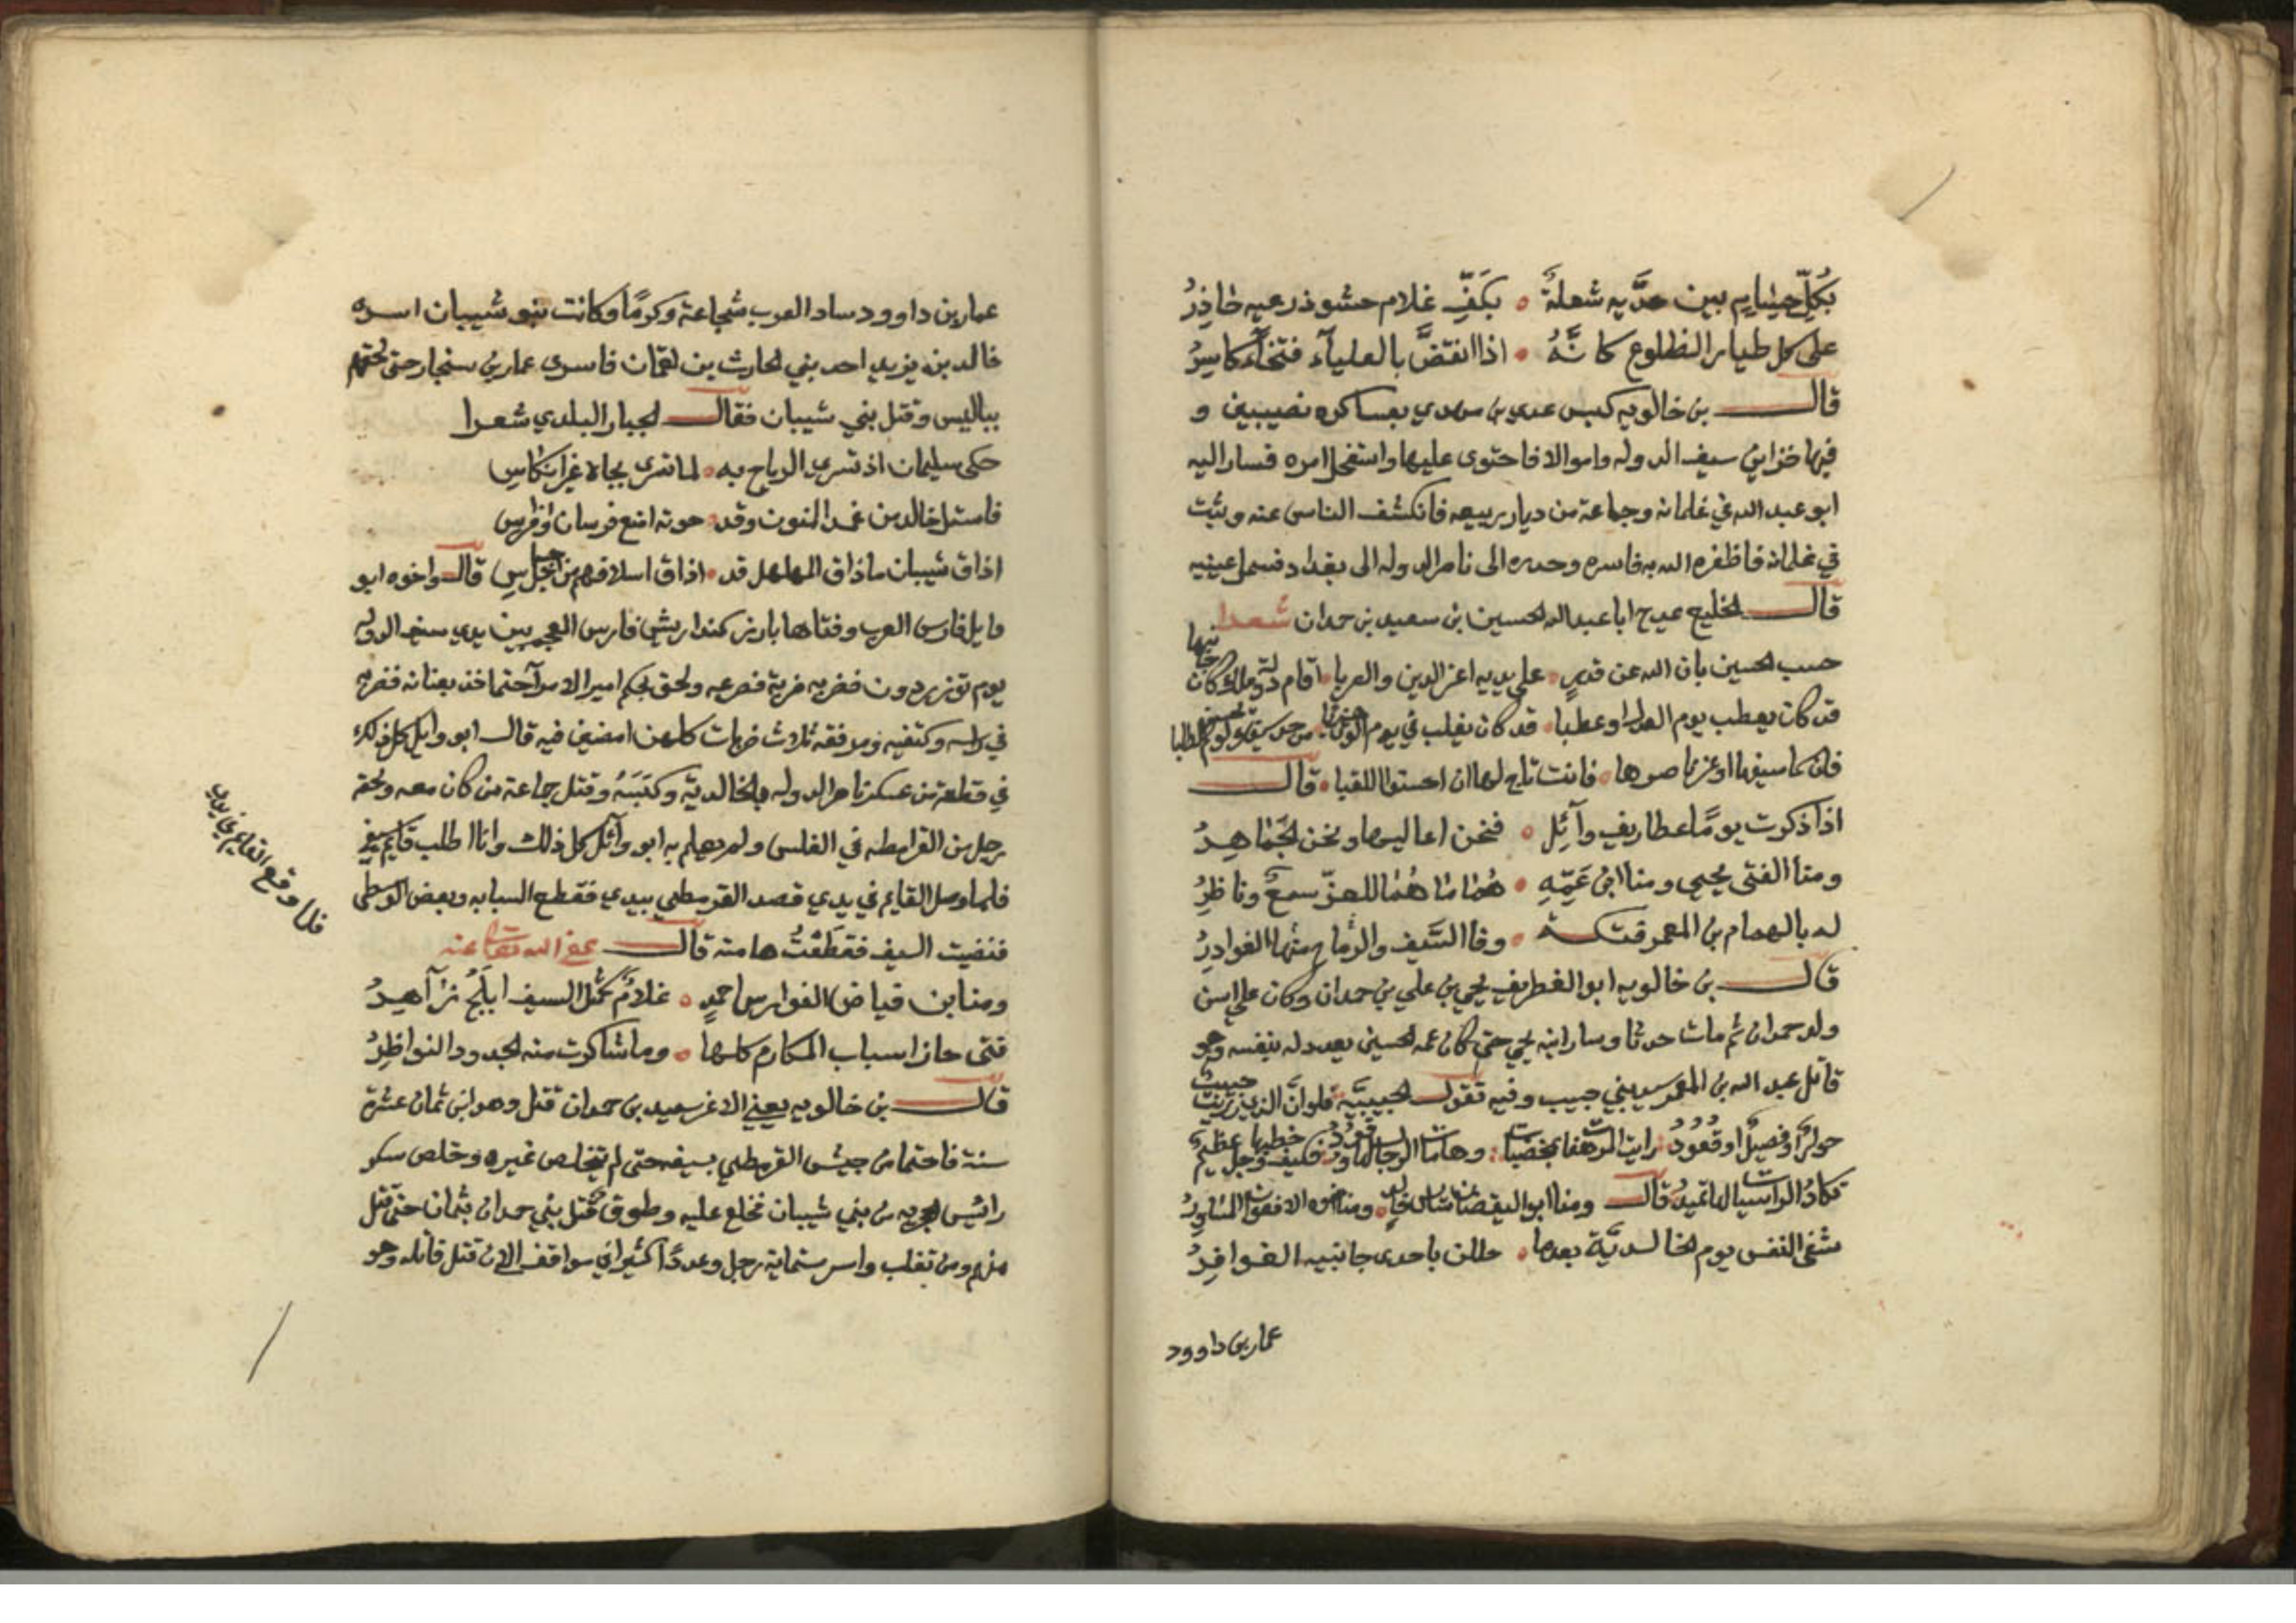 بكلّ حسام بين حدّيه شعلةٌ ۰ بكفّ غلام حشو درعيه خاذرُ
على كل طيار الظلوع كانّهُ ۰ اذا انقضّ بالعليآء فتخآء كاسِرُ
قال بن خالويه كبس عدي بن مهدي بعساكره نصيبين و
فيها خزاين سيف الدوله وامواله فاحتوى عليها واستفحل امره فسار اليه
ابو عبد الله في غلمانه وجماعة من ديار ربيعه فانكشف الناس عنه وثبت
في غلمانه فاظفره الله به فاسره وحدره الى ناصر الدوله الى بغداد فسمل عينيه
قال الخليع يمدح ابا عبد الله الحسين بن سعيد بن حمدان شعرا
حسب الحسين بان الله عن قدرٍ ۰ على يديه اعز الدين والعربا ۰ اقام دولة ملك كان
قد كان يعطب يوم او عطبا ۰ قد كان يغلب في يوم
فان كما سيفها او عز ناصرها ۰ فانت تاج لها ان احسنوا اللقبا ۰ قال
اذا ذكرت يومًا غطاريف وآئل ۰ فنحن اعاليها ونحن الجماهيرُ
ومنا الفتى يحيى ومنا ابن عَمّهِ ۰ هُما ما هُما للعزّ سمعٌ وناظرُ
له بالهمام بن المعمر فتكة ۰ وفا السَّيف والرماح منها الغوادرُ
قال بن خالويه ابو الغطريف يحي بن علي بن حمدان وكان علي اسن
ولد حمدان ثم مات حدثا وسار ابنه يحي حتى كان عمه الحسين يعدله بنفسه وهو
قاتل عبد الله بن المعمر سيد بني حبيب وفيه تقول الحبيبيّة فلو ان الذين حبيب
حوار او فصيل او قعُودُ رايت المرهفات وهامات الرجال فكيف وجل خطبها عظيم
تكاد الراسيات لها تميدُ قال ومنا ابو اليقضان ۰ ومنا اخوه
شفى النفس يوم الخالديّة بعدما ۰ حللن باحدى جانبيه الغوافِرُ
عمار بن داوود
عمار بن داوود ساد العرب شجاعة وكرمًا وكانت بنو شيبان اسره
خالد بن يزيد احد بني الحارث بن لقمان فاسرى عمار من سنجار حتى لحقهم
ببالس وقتل بني شيبان فقال الجبار البلدي شعرا
حكى سليمان اذ تسري الرياح به ۰ لما سرى بجاه غير انكاس
فاستل خالد من غمد المنون وقد ۰ حوته امنع فرسان وافراس
اذاق شيبان ما ذاق المهلهل قد ۰ اذاق اسلافهم من قبل جساس قال واخوه ابو
وايل فارس العرب وفتاها بارز كمندار يشي فارس العجم بين يدي سيف الدوله
يوم توزردون فضربه ضربة فصرعه ولحق بجكم امير الامرآ حتى اخذ بعنانه فضربه
في راسه وكتفيه ومرفقه ثلاث ضربات كلهن امضين فيه قال ابو وايل كل ذلك
في قطعة من عسكر ناصر الدوله بالخالدية وكبَسَهُ وقتل جماعة من كان معه ولحقه
رجل من القرامطه في الغلس ولم يعلم به ابو وآئل كل ذلك وانا اطلب قايم سيفي
فلما وصل القايم في يدي قصد القرمطي بيدي فقطع السبابه وبعض الوسطى
فلما وقع القايم في يدي
فنضيت السيف فقطعْتُ هامته قال عفى الله تعالى عنه
ومنا ابن قياض الفوارس احمدٍ ۰ غلامٌ كمثل السيف ابلجُ زآهرُ
فتى حاز اسباب المكارم كلها ۰ وما شاكرت منه الخدود النواظِرُ
قال بن خالويه يعني الاغر سعيد بن حمدان قتل وهو ابن ثمان عشرة
سنة فاحتما من جيش القرمطي بسيفه حتى لم يتخلص غيره وخلص سكر
رائيس الحربه من بني شيبان فخلع عليه وطوق وقتل بني حمدان بثمان حتى قتل
منهم ومن تغلب واسر ستماية رجل وعددًا كثيرا في مواقف الان قتل قاتله وهو